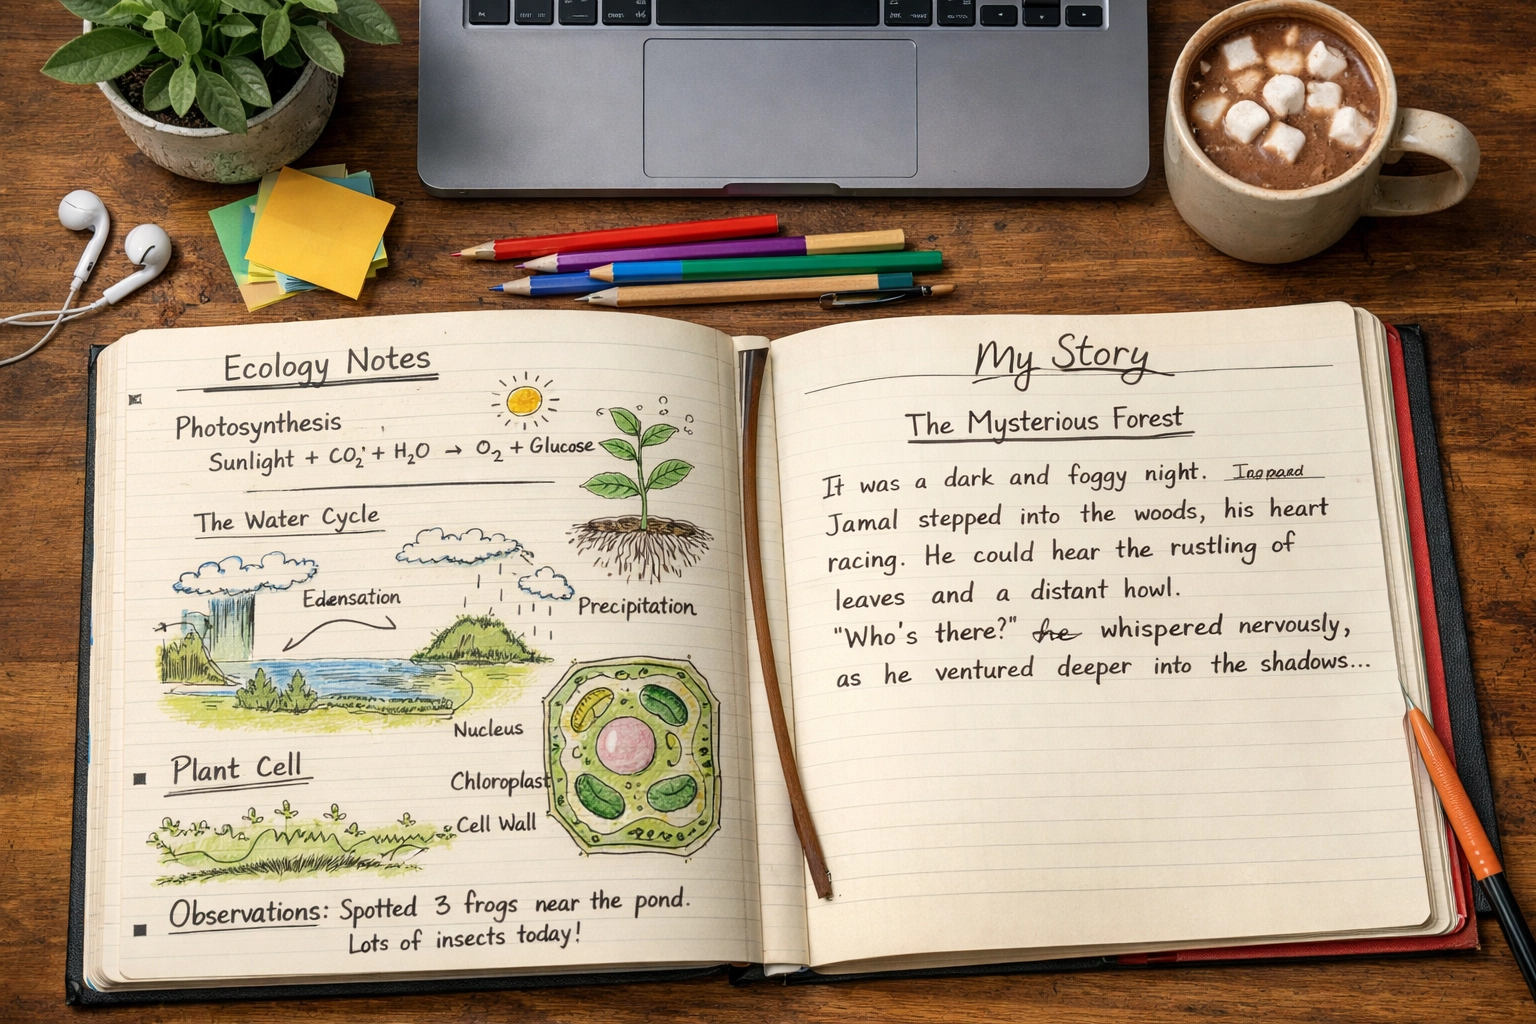 Ecology Notes
Photosynthesis
Sunlight + CO₂ + H₂O → O₂ + Glucose
The Water Cycle
Edensation
Precipitation
Nucleus
Plant Cell
Chloroplast
Cell Wall
Observations: Spotted 3 frogs near the pond.
Lots of insects today!
My Story
The Mysterious Forest
It was a dark and foggy night.
Jamal stepped into the woods, his heart
racing. He could hear the rustling of
leaves and a distant howl.
"Who's there?" he whispered nervously,
as he ventured deeper into the shadows...